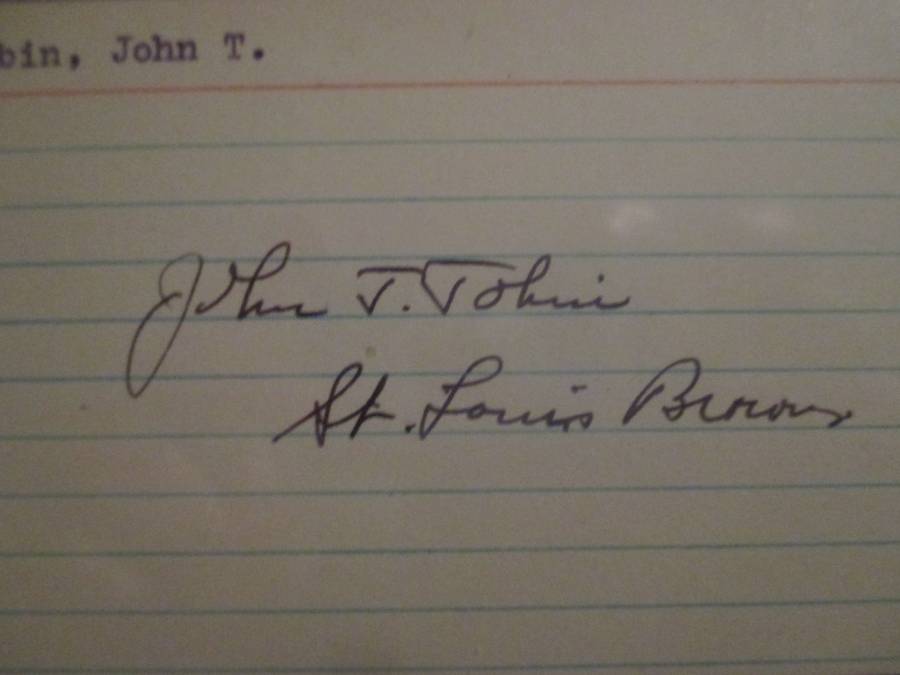 bin, John T.
John T. Tobin
St. Louis Browns